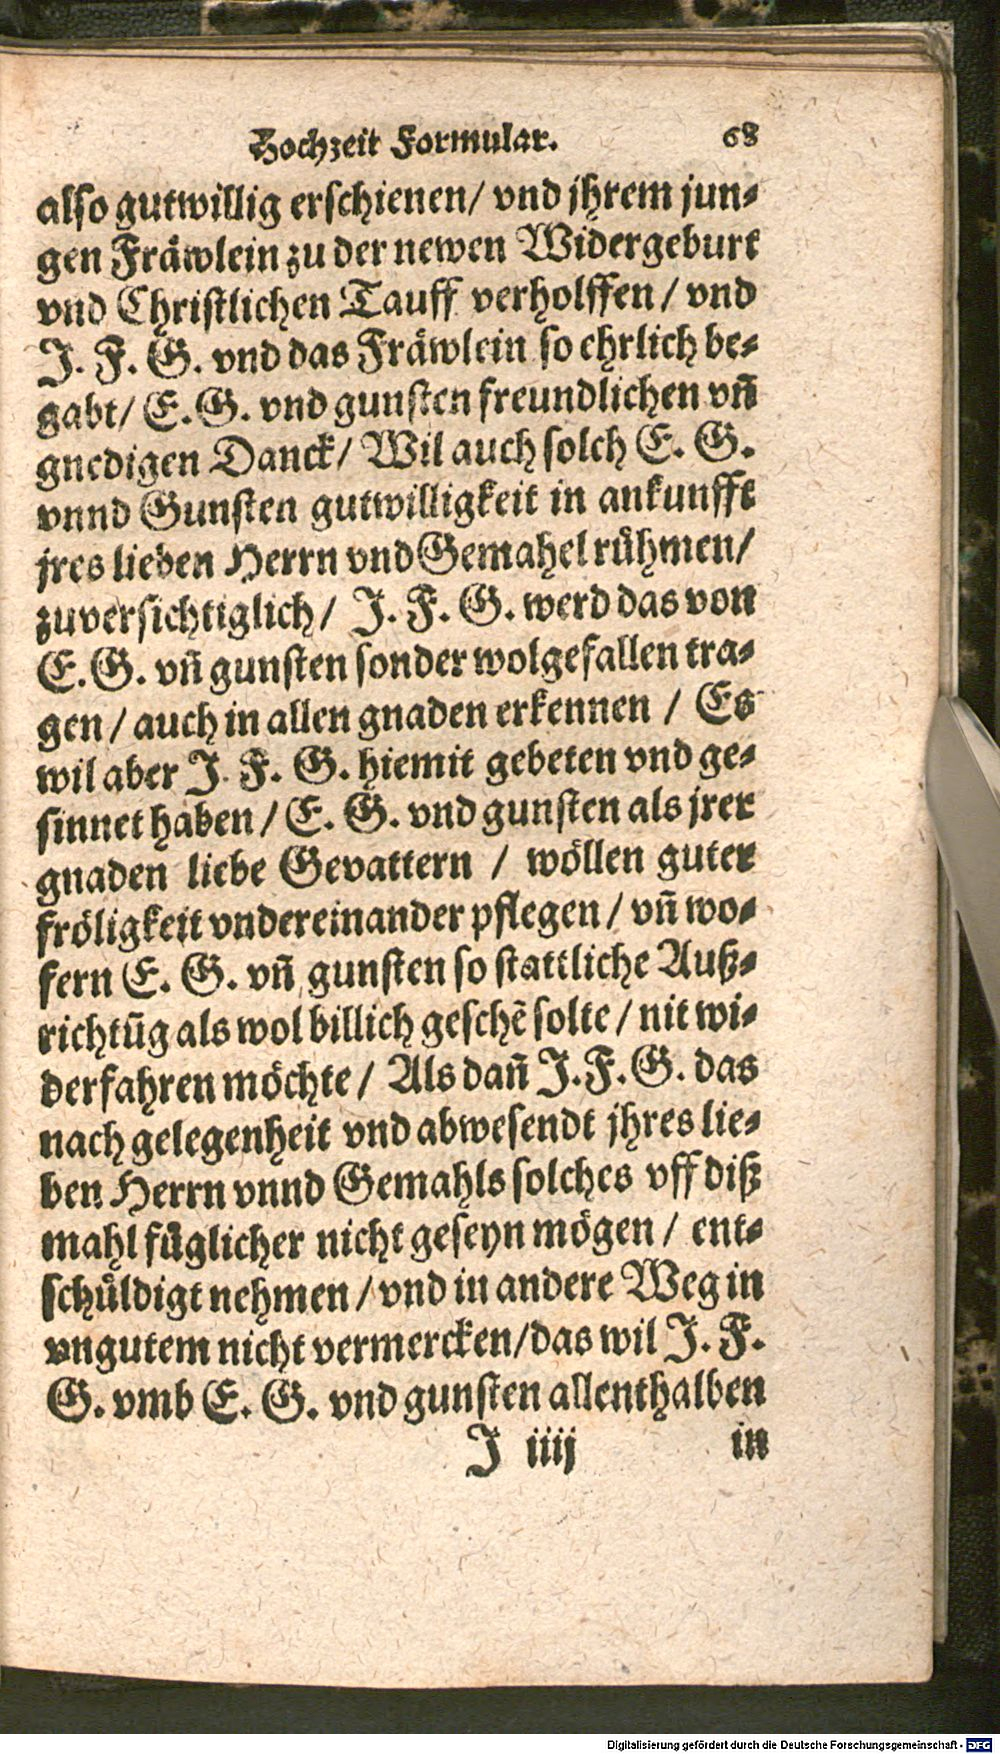 Hochzeit Formular. 68
also gutwillig erschienen/ vnd jhrem jun-
gen Fräwlein zu der newen Widergeburt
vnd Christlichen Tauff verholffen/ vnd
J. F. G. vnd das Fräwlein so ehrlich be-
gabt/ E. G. vnd gunsten freundlichen vñ
gnedigen Danck/ Wil auch solch E. G.
vnnd Gunsten gutwilligkeit in ankunfft
jres lieben Herrn vnd Gemahel rühmen/
zuversichtiglich/ J. F. G. werd das von
E. G. vñ gunsten sonder wolgefallen tra-
gen/ auch in allen gnaden erkennen/ Es
wil aber J. F. G. hiemit gebeten vnd ge-
sinnet haben/ E. G. vnd gunsten als jrer
gnaden liebe Gevattern/ wöllen guter
fröligkeit vndereinander pflegen/ vñ wo-
fern E. G. vñ gunsten so stattliche Auß-
richtũg als wol billich geschẽ solte/ nit wi-
derfahren möchte/ Als dañ J. F. G. das
nach gelegenheit vnd abwesendt jhres lie-
ben Herrn vnnd Gemahls solches vff diß
mahl füglicher nicht geseyn mögen/ ent-
schüldigt nehmen/ vnd in andere Weg in
vngutem nicht vermercken/ das wil J. F.
G. vmb E. G. vnd gunsten allenthalben
J iiij in
Digitalisierung gefördert durch die Deutsche Forschungsgemeinschaft - DFG